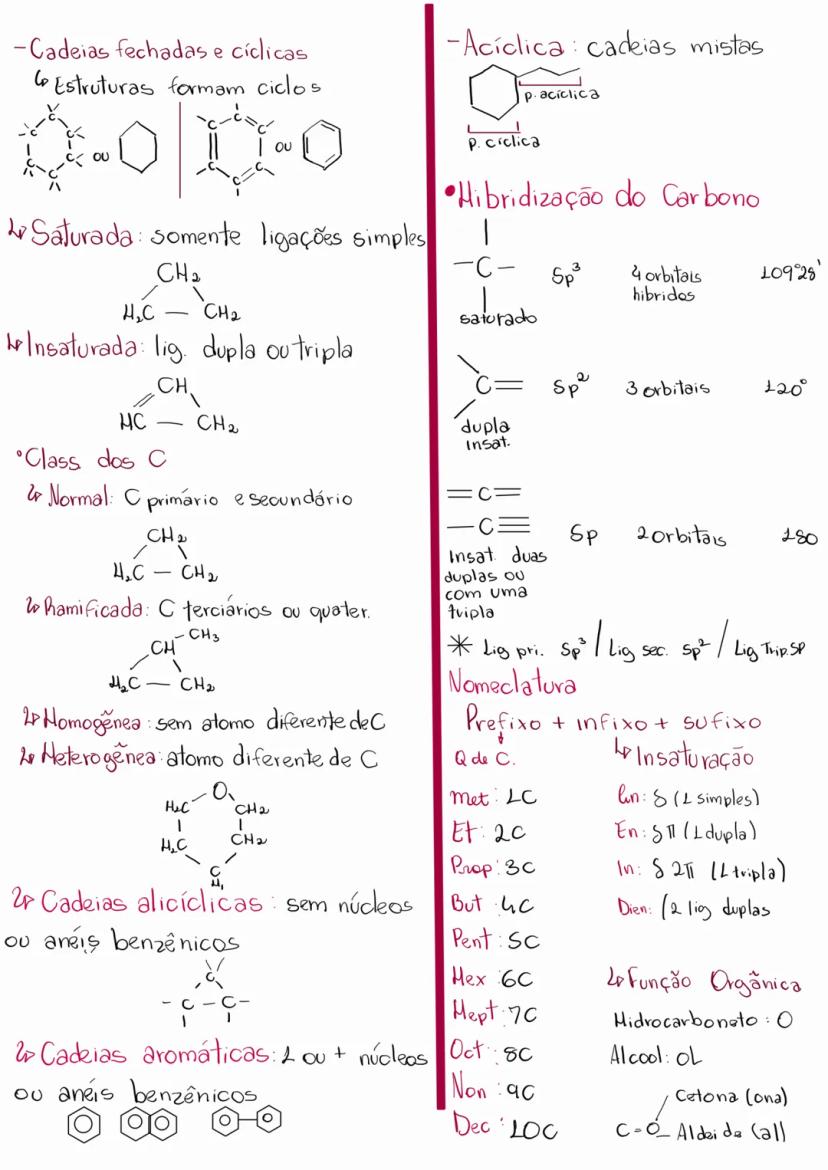 -Cadeias fechadas e cíclicas
↳ Estruturas formam ciclos
C C C C C C OU | C C C C C C OU
↳ Saturada: somente ligações simples
CH₂
H₂C — CH₂
↳ Insaturada: lig. dupla ou tripla
CH
HC — CH₂
°Class dos C
↳ Normal: C primário e secundário
CH₂
H₂C — CH₂
↳ Ramificada: C terciários ou quater.
CH - CH₃
H₂C — CH₂
↳ Homogênea: sem atomo diferente de C
↳ Heterogênea: atomo diferente de C
O
H₂C CH₂
H₂C CH₂
C
H₂
↳ Cadeias alicíclicas: sem núcleos
ou anéis benzênicos
C
- C - C -
↳ Cadeias aromáticas: 1 ou + núcleos
ou anéis benzênicos
-Acíclica: cadeias mistas
p. acíclica
p. cíclica
•Hibridização do Carbono
-C- Sp³ 4 orbitais 109°28'
hibridos
saturado
C= Sp² 3 orbitais 120°
dupla
insat.
=C=
-C≡ Sp 2 orbitais 180
Insat. duas
duplas ou
com uma
tripla
* Lig pri. Sp³ / Lig sec. Sp² / Lig Trip. SP
Nomeclatura
Prefixo + infixo + sufixo
Q de C.
met: 1C
Et: 2C
Prop: 3C
But: 4C
Pent: 5C
Hex: 6C
Hept: 7C
Oct: 8C
Non: 9C
Dec: 10C
↳ Insaturação
An: δ (1 simples)
En: δ π (1 dupla)
In: δ 2π (1 tripla)
Dien: (2 lig duplas
↳ Função Orgânica
Hidrocarboneto: O
Alcool: OL
Cetona (ona)
C=O Aldeida (al)